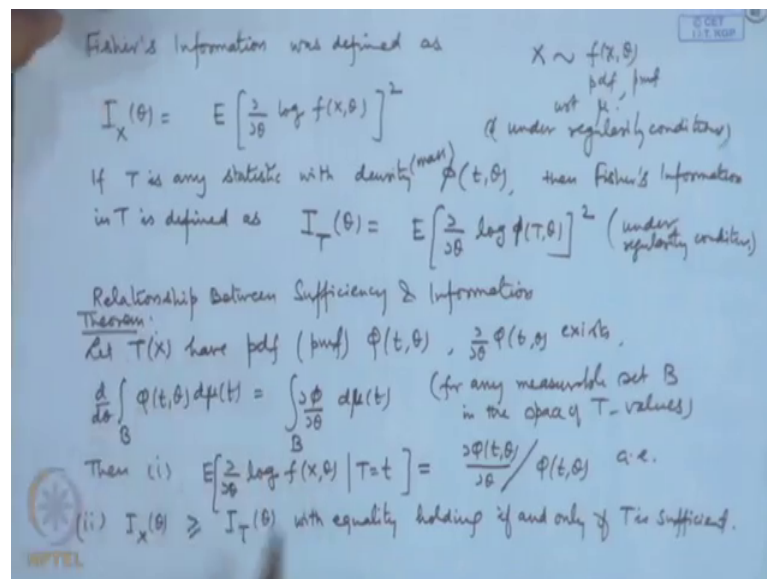 © CET
I.I.T. KGP
Fisher's Information was defined as
X ~ f(x,θ)
pdf, pmf
wrt μ.
I_X(θ) = E[∂/∂θ log f(x,θ)]²
(under regularity conditions)
If T is any statistic with density (mass) φ(t,θ), then Fisher's Information
in T is defined as I_T(θ) = E[∂/∂θ log φ(T,θ)]² (under regularity conditions)
Relationship Between Sufficiency & Information
Theorem:
Let T(X) have pdf (pmf) φ(t,θ), ∂/∂θ φ(t,θ) exists,
d/dθ ∫_B φ(t,θ) dμ(t) = ∫_B ∂φ/∂θ dμ(t) (for any measurable set B
in the space of T-values)
Then (i) E[∂/∂θ log f(x,θ) | T=t] = ∂φ(t,θ)/∂θ / φ(t,θ) a.e.
(ii) I_X(θ) ≥ I_T(θ) with equality holding if and only if T is sufficient.
NPTEL